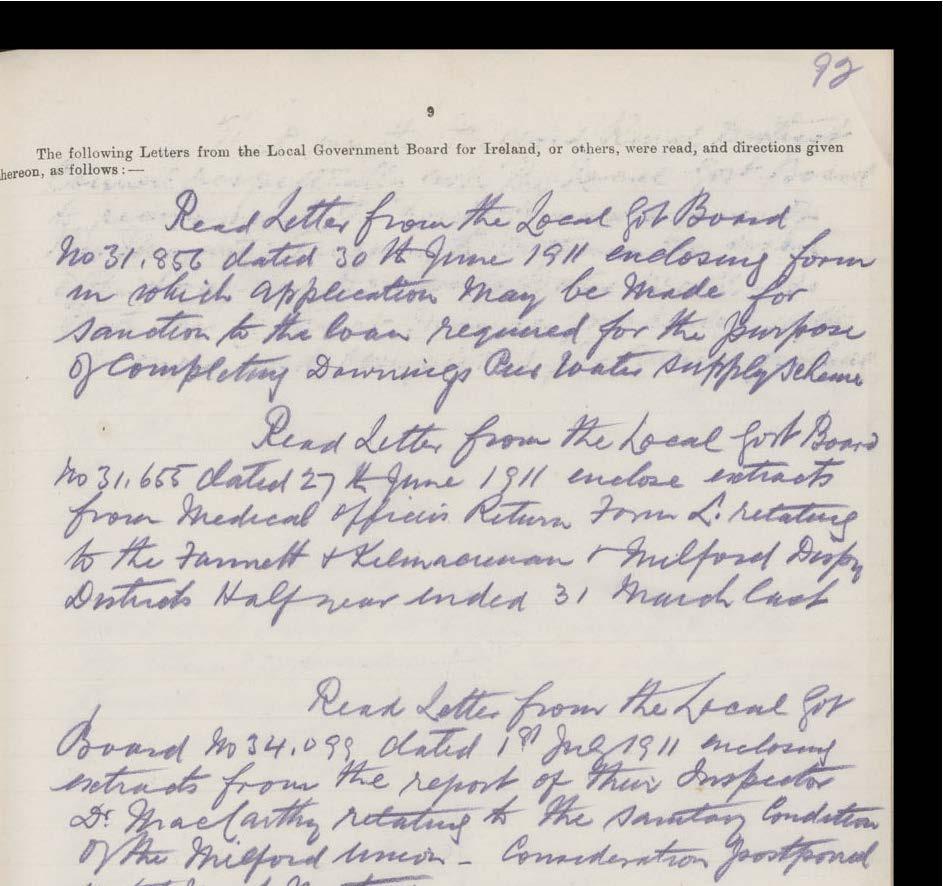 92
9
The following Letters from the Local Government Board for Ireland, or others, were read, and directions given
hereon, as follows:—
Read Letter from the Local Govt Board
No 31.856 dated 30th June 1911 enclosing form
in which application may be made for
sanction to the loan required for the purpose
of Completing Downings Pier Water supply scheme
Read Letter from the Local Govt Board
No 31.655 dated 27th June 1911 enclose extracts
from Medical Officers Return Form L. relating
to the Fannett & Kilmacrenan & Milford Dispy
Districts Half year ended 31 March last
Read Letter from the Local Govt
Board No 34.099 dated 1st July 1911 enclosing
extracts from the report of their Inspector
Dr MacCarthy relating to the sanitary Condition
of the Milford Union – Consideration postponed